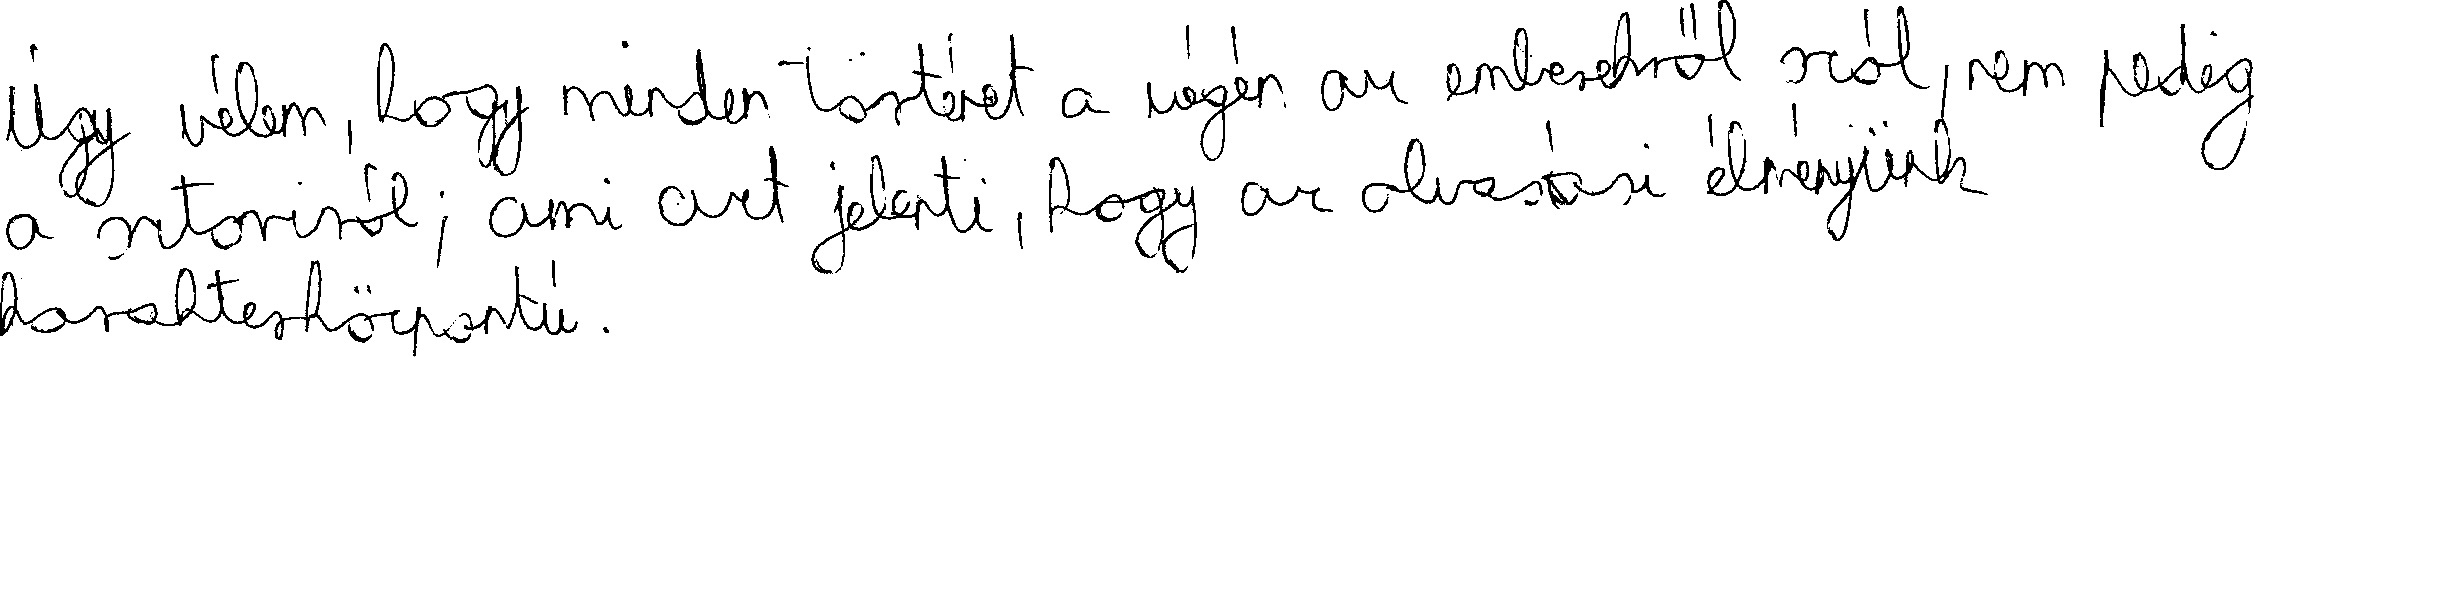 Úgy vélem, hogy minden történet a végén az emberekről szól, nem pedig
a sztoriról; ami azt jelenti, hogy az olvasási élményünk
karakterközpontú.